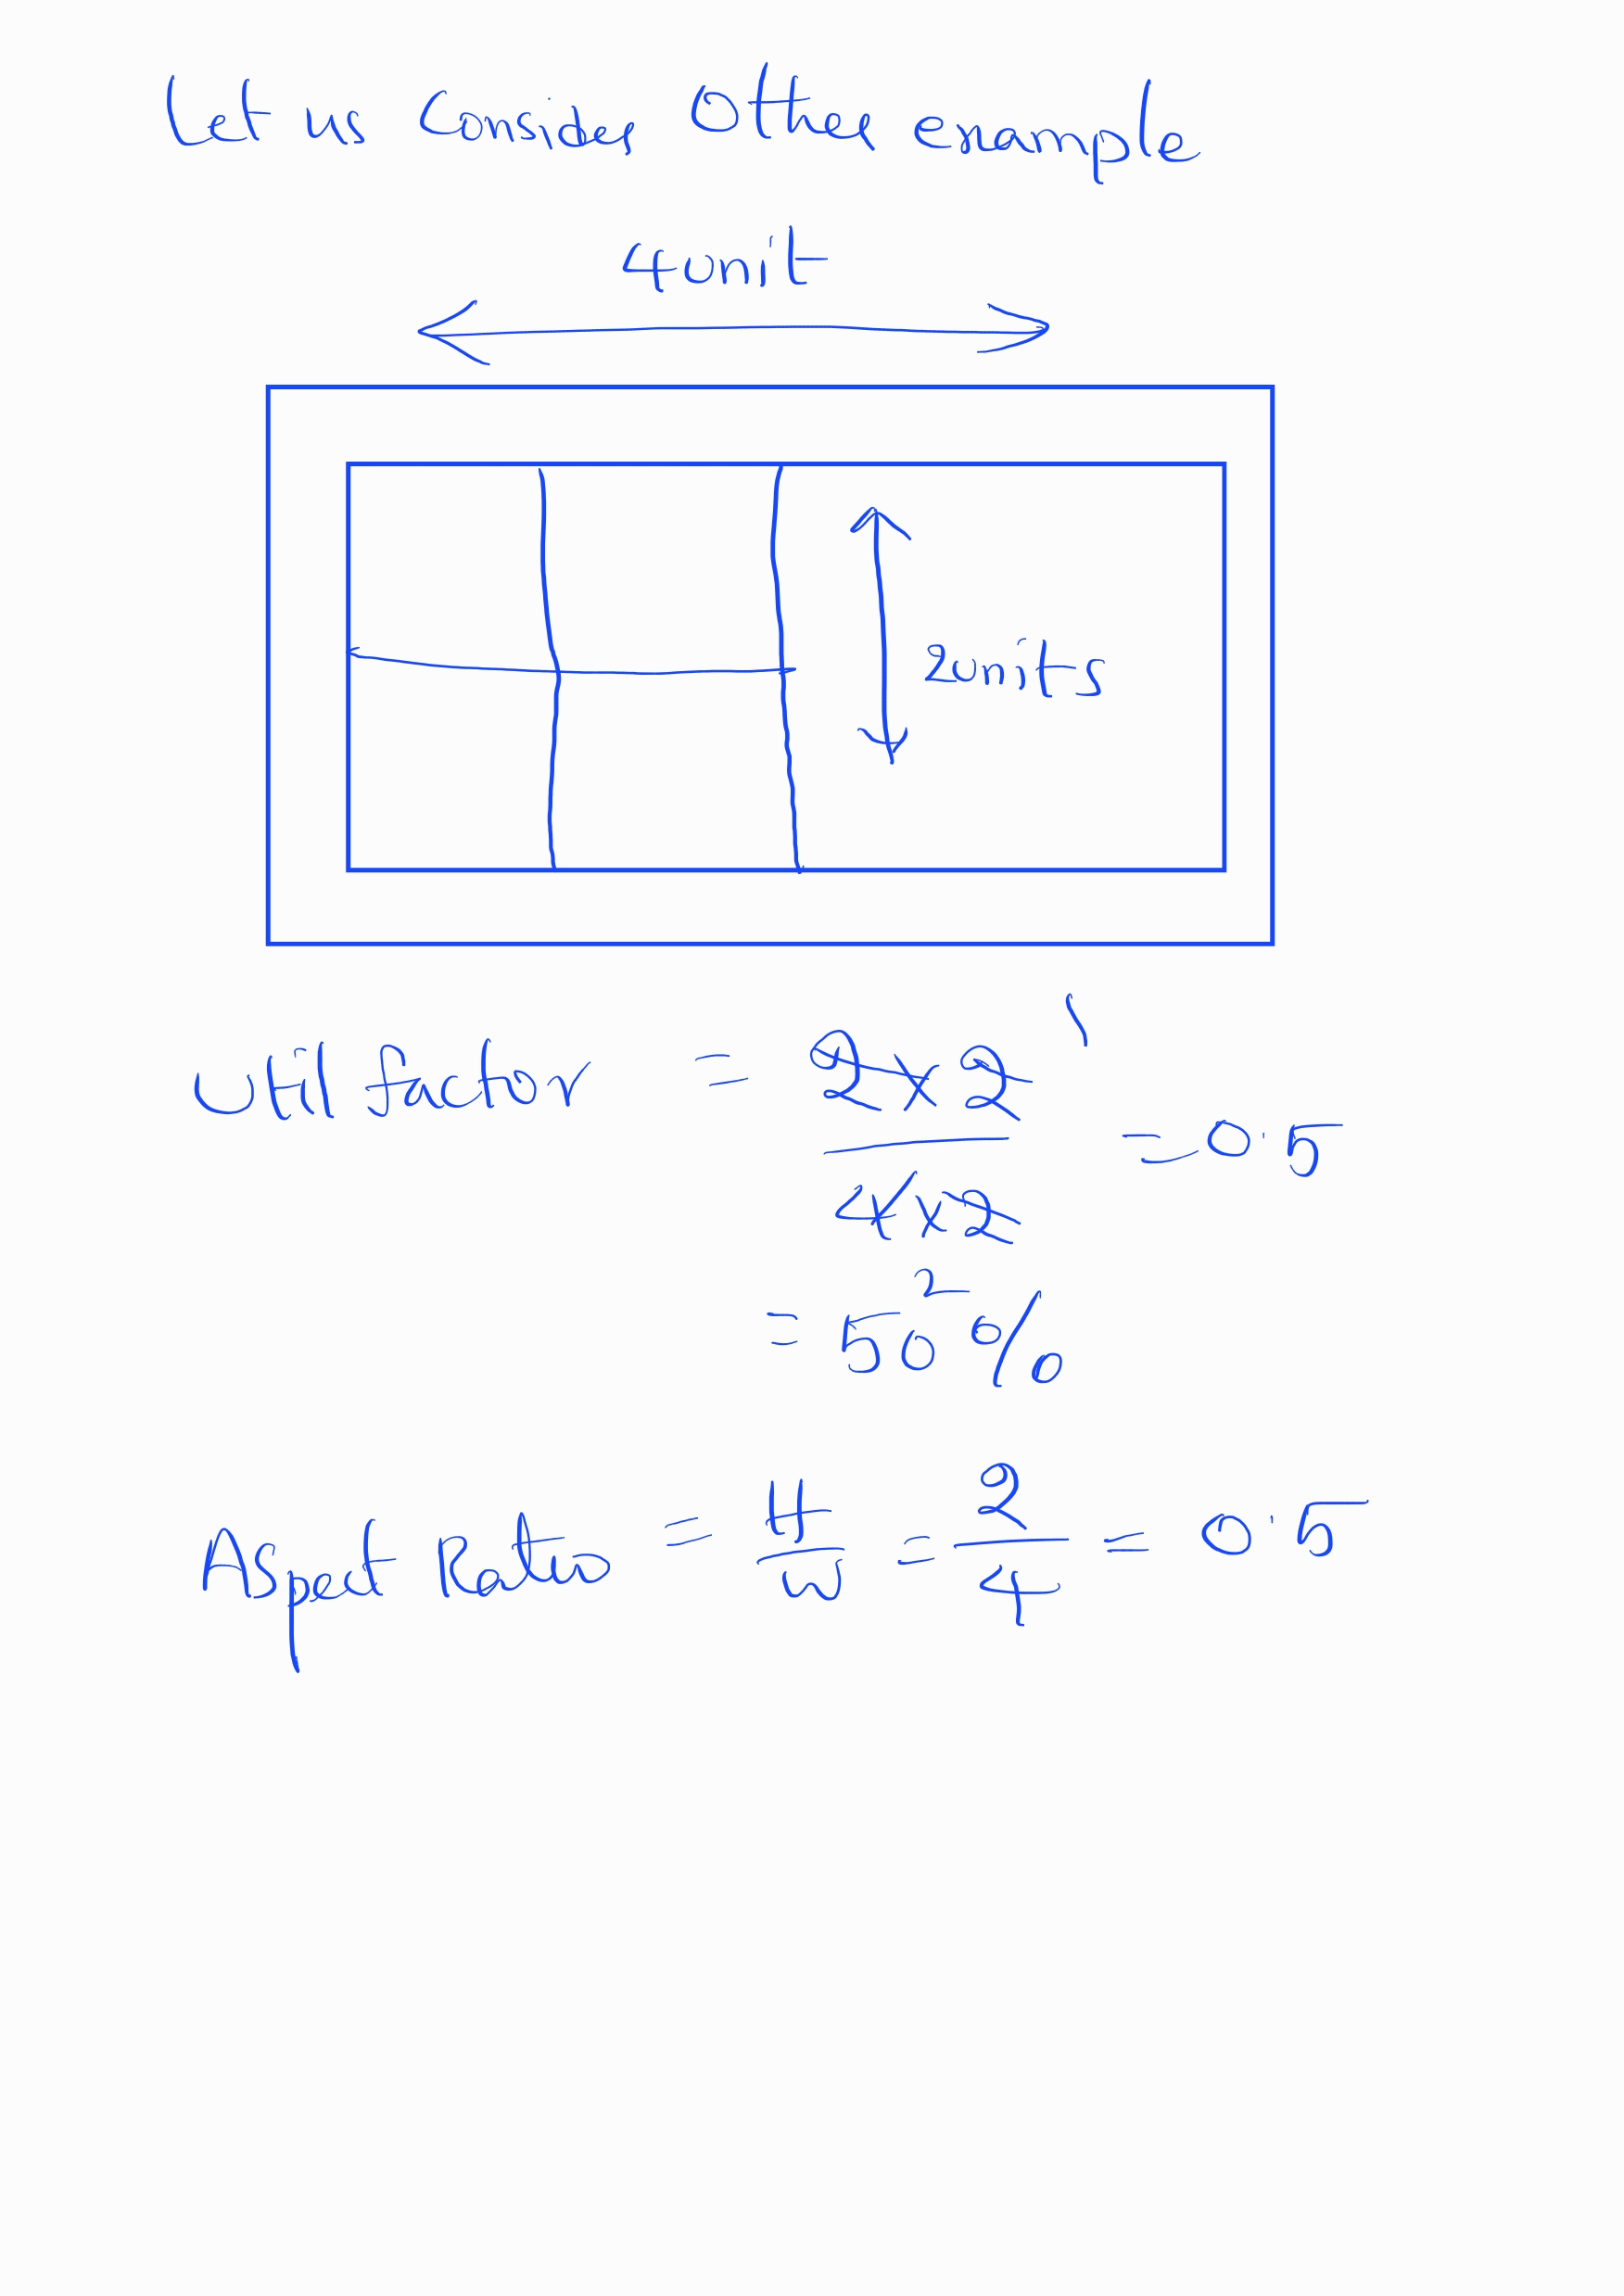 Let us Consider Other example
4 unit
2 units
Util factor = 2 x 2 1
4 x 2 = 0.5
2
= 50%
Aspect Ratio = H/W = 2/4 = 0.5